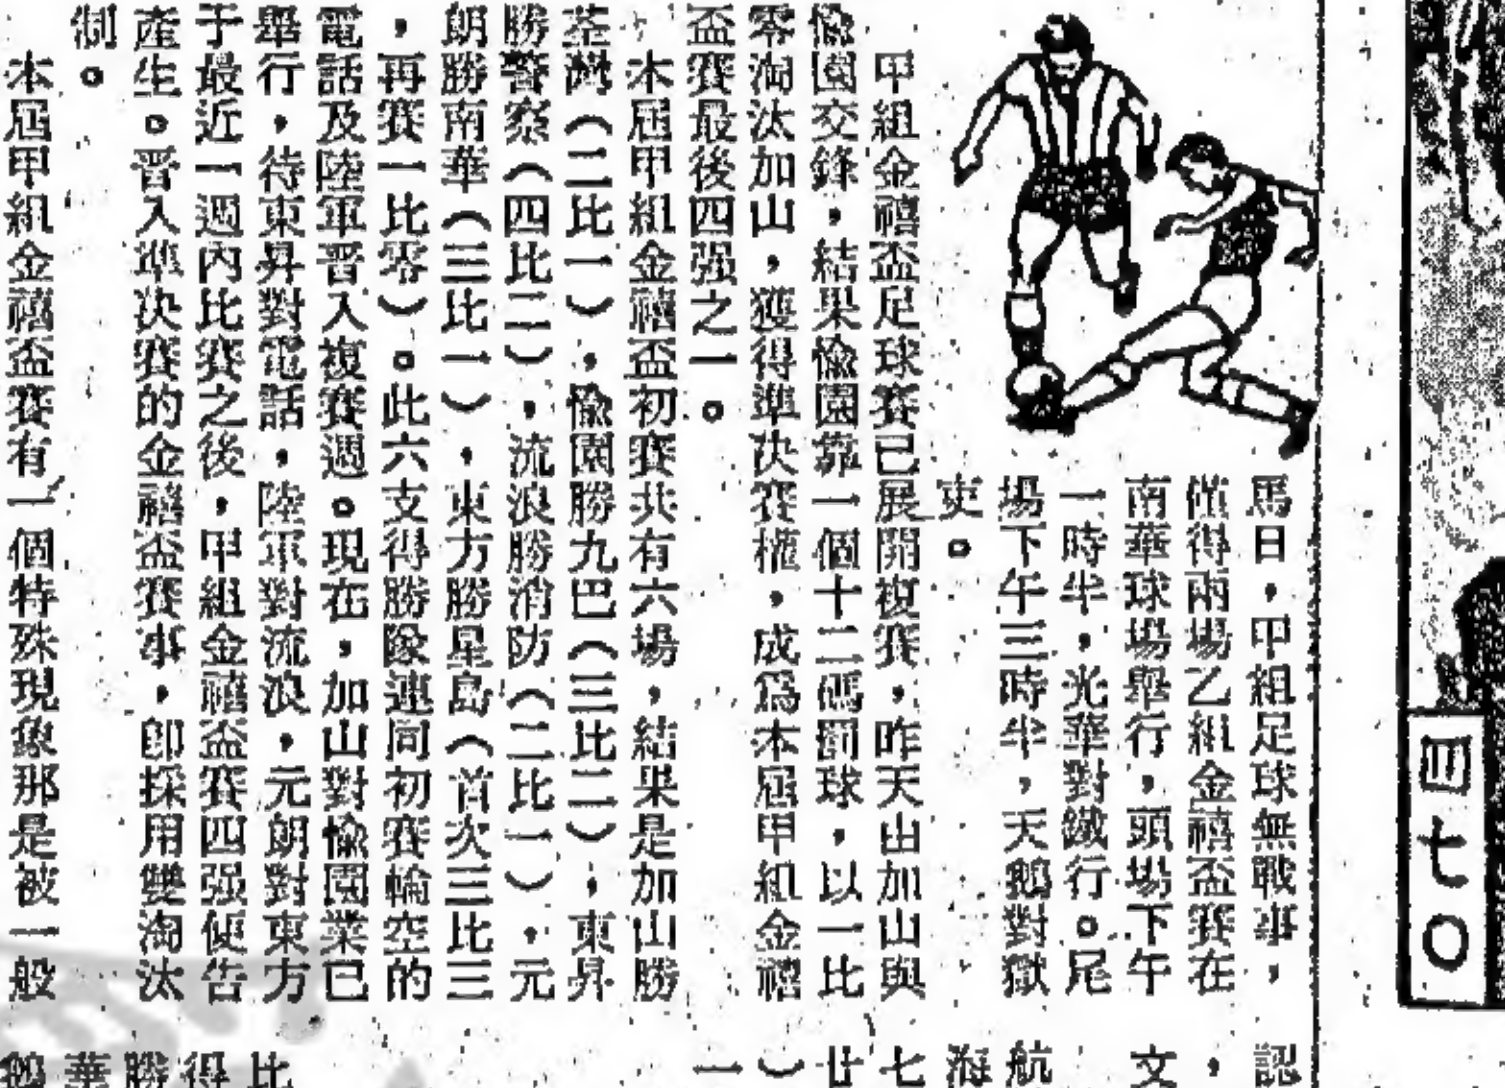 馬日，甲組足球無戰事，
僅得兩場乙組金禧盃賽在
南華球場舉行，頭場下午
一時半，光華對鐵行。尾
場下午三時半，天鵝對獄
吏。
甲組金禧盃足球賽已展開複賽，昨天由加山與
愉園交鋒，結果愉園靠一個十二碼罰球，以一比
零淘汰加山，獲得準決賽權，成爲本屆甲組金禧
盃賽最後四强之一。
本屆甲組金禧盃初賽共有六場，結果是加山勝
荃灣（二比一），愉園勝九巴（三比二）；東昇
勝警察（四比二），流浪勝消防（二比一），元
朗勝南華（三比一），東方勝星島（首次三比三
，再賽一比零）。此六支得勝隊連同初賽輪空的
電話及陸軍晋入複賽週。現在，加山對愉園業已
舉行，待東昇對電話，陸軍對流浪，元朗對東方
于最近一週內比賽之後，甲組金禧盃賽四强便告
產生。晋入準決賽的金禧盃賽事，卽採用雙淘汰
制。
本屆甲組金禧盃賽有一個特殊現象那是被一般
四七〇
認
，
文
航
海
七
廿
）
一
比
得
勝
華
鵝